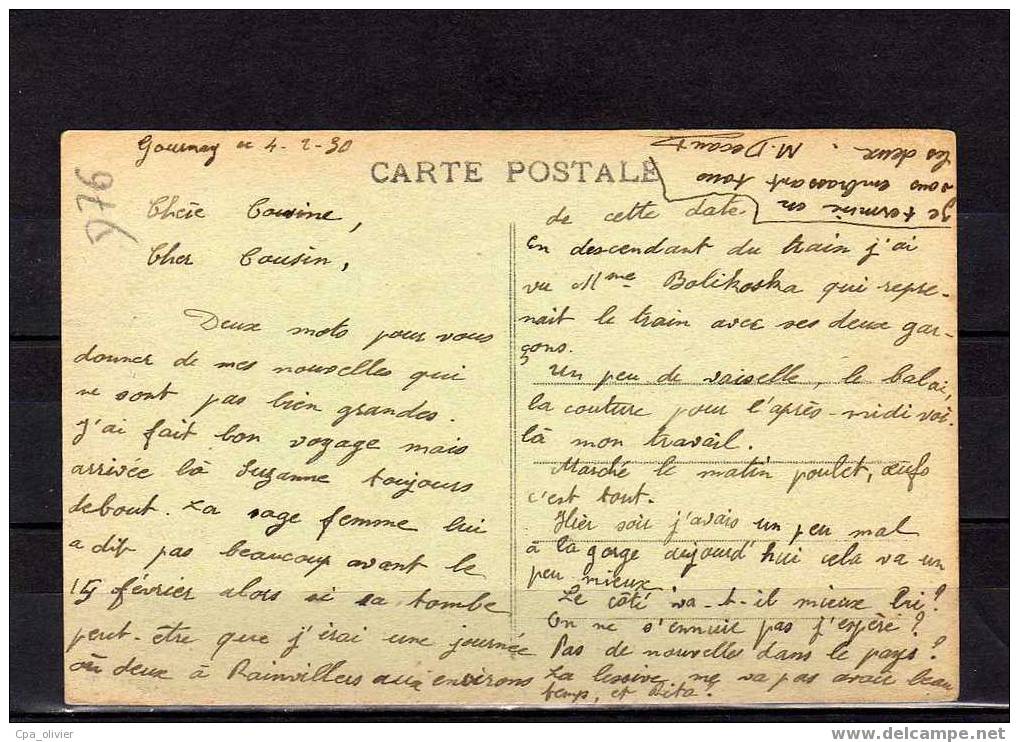 Gournay ce 4-2-30
CARTE POSTALE
D76
Chère Cousine,
Cher Cousin,
Deux mots pour vous
donner de mes nouvelles qui
ne sont pas bien grandes.
J'ai fait bon voyage mais
arrivée là Suzanne toujours
debout. La sage femme lui
a dit pas beaucoup avant le
15 février alors si ça tombe
peut-être que j'irai une journée
ou deux à Rainvillers aux environs
de cette date
En descendant du train j'ai
vu Mme Bolikoska qui repre-
nait le train avec ses deux gar-
çons.
Un peu de vaiselle, le balai,
la couture pour l'après-midi voi-
là mon travail.
Marché le matin poulet, œufs
c'est tout.
Hier soir j'avais un peu mal
à la gorge aujourd'hui cela va un
peu mieux
Le côté va-t-il mieux Pri?
On ne s'ennuie pas j'espère?
Pas de nouvelles dans le pays?
La lessive ne va pas avoir beau
temps, et Rita?
Je termine en
vous embrassant tous
les deux.
M. Decaux
Cpa_olivier
www.delcampe.net